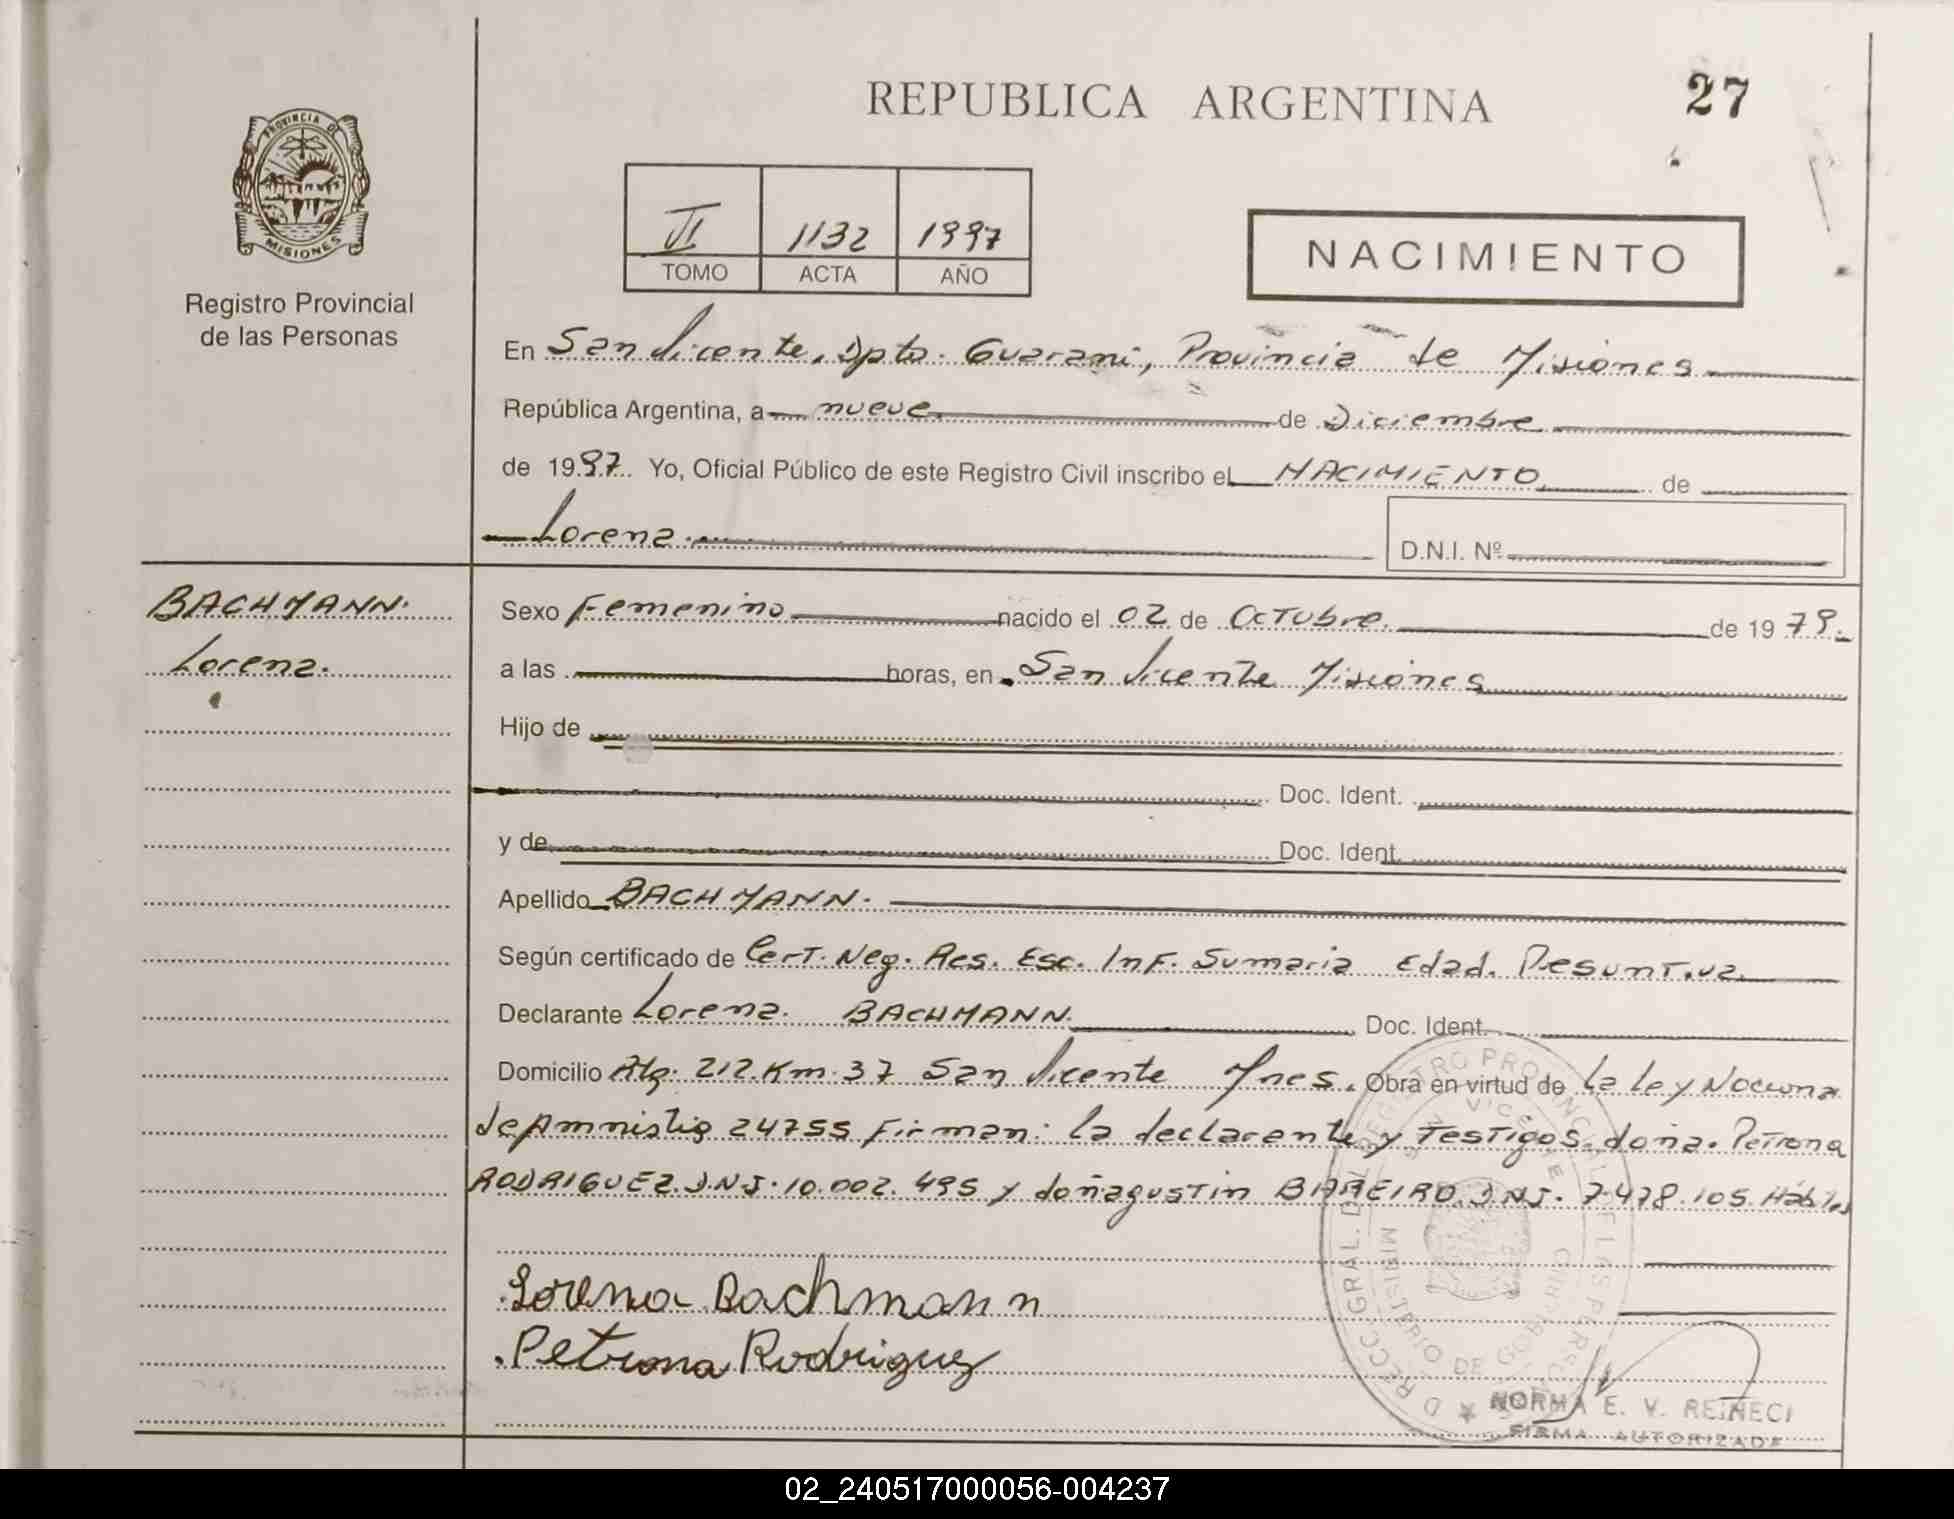 REPUBLICA ARGENTINA
27
PROVINCIA DE
MISIONES
Registro Provincial
de las Personas
II 1132 1997
TOMO ACTA AÑO
NACIMIENTO
En San Vicente, Dpto. Guarani, Provincia de Misiones
República Argentina, a nueve de Diciembre
de 1997. Yo, Oficial Público de este Registro Civil inscribo el NACIMIENTO de
Lorena
D.N.I. Nº
BACHMANN.
Lorena.
Sexo Femenino nacido el 02 de Octubre de 1979.
a las horas, en San Vicente Misiones
Hijo de
Doc. Ident.
y de Doc. Ident.
Apellido BACHMANN.
Según certificado de Cert. Neg. Res. Esc. Inf. Sumaria Edad. Presuntiva.
Declarante Lorena. BACHMANN Doc. Ident.
Domicilio 212. Km. 37 San Vicente Mnes. Obra en virtud de la ley Naciona
de Amnistia 24755 Firman: la declarante y Testigos doña. Petrona
RODRIGUEZ D.N.I. 10.002.495 y don Agustin BAREIRO. D.N.I. 7.478.105 Hábiles
Lorena Bachmann
Petrona Rodriguez
MINISTERIO DE GOBIERNO
NORMA E. V. REINECI
FIRMA AUTORIZADA
02_240517000056-004237